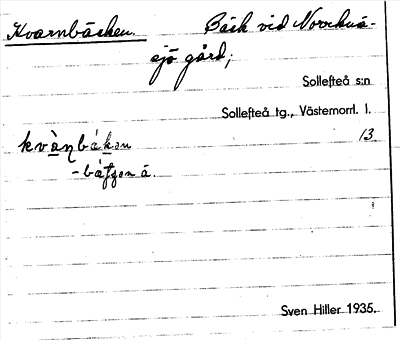 Kvarnbäcken. Bäck vid Norrkvä-
sjö gård,
Sollefteå s:n
Sollefteå tg., Västernorrl. l.
kvà̱ŋbák̠ən 13
Sven Hiller 1935.